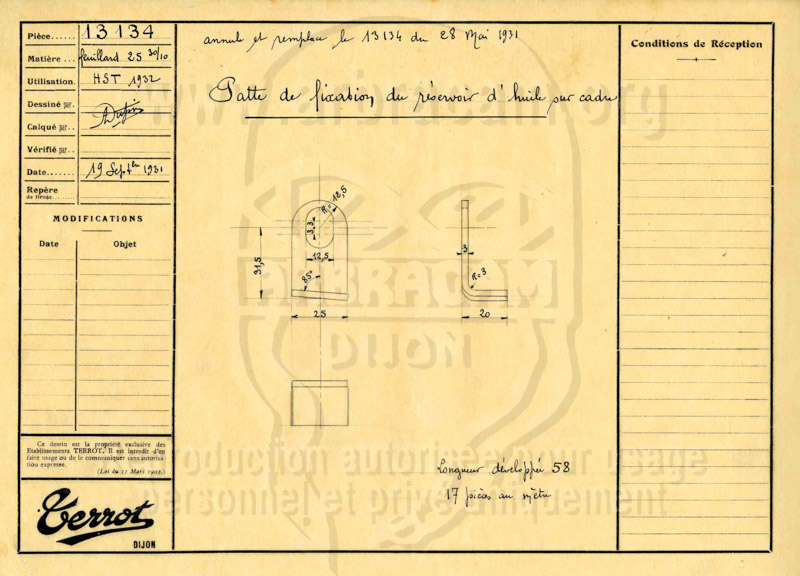 Pièce...... 13134
Matière... feuillard 25 30/10
Utilisation. HST 1932
Dessiné par.
Calqué par..
Vérifié par..
Date....... 19 Sept bre 1931
Repère
de tirage.......
MODIFICATIONS
Date Objet
Ce dessin est la propriété exclusive des
Etablissements TERROT. Il est interdit d'en
faire usage ou de le communiquer sans autorisa-
tion expresse.
(Loi du 11 Mars 1902.)
Terrot
DIJON
annule et remplace le 13134 du 28 Mai 1931
Patte de fixation du réservoir d'huile sur cadre
R=12,5
3,3
12,5
31,5
85°
25
3
R=3
20
Longueur développée 58
17 pièces au mètre
Conditions de Réception
www.arbracam.org
ARBRACAM
DIJON
reproduction autorisée pour usage
personnel et privé uniquement